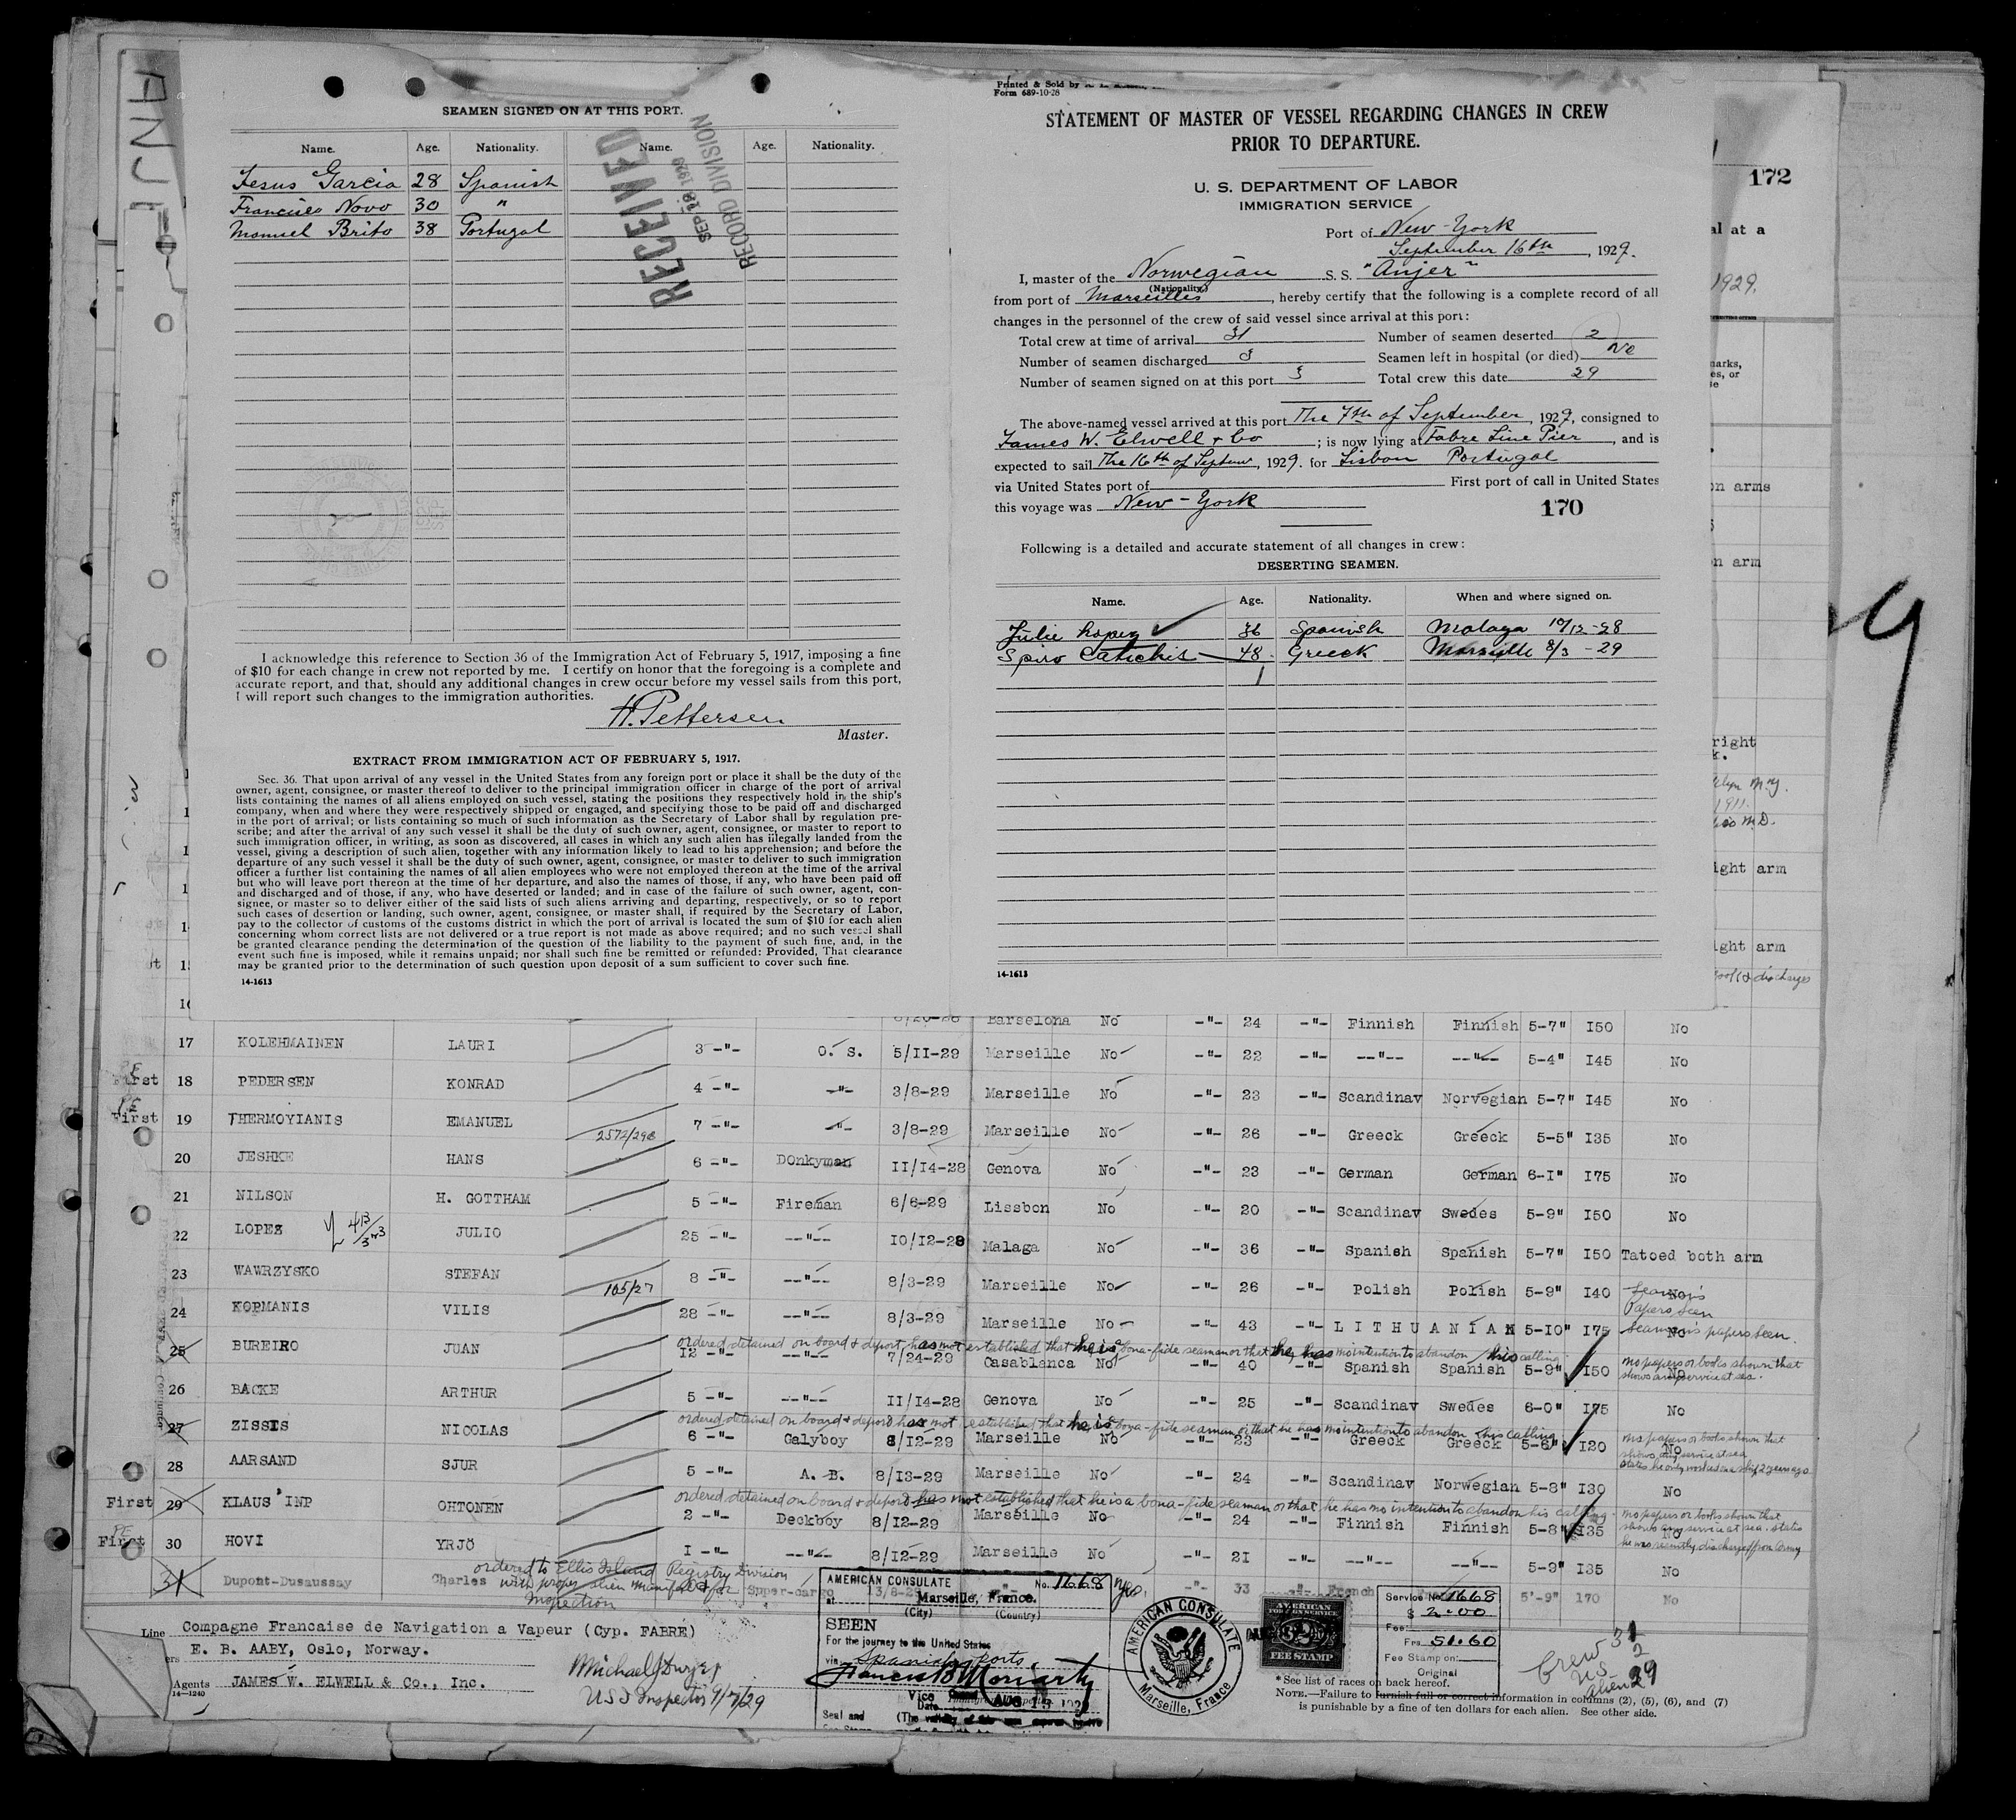 ANJE
SEAMEN SIGNED ON AT THIS PORT.
Name. Age. Nationality. Name. Age. Nationality.
Jesus Garcia 28 Spanish
Francisco Novo 30 "
Manuel Brito 38 Portugal
RECEIVED
SEP 18 1929
RECORD DIVISION
I acknowledge this reference to Section 36 of the Immigration Act of February 5, 1917, imposing a fine
of $10 for each change in crew not reported by me. I certify on honor that the foregoing is a complete and
accurate report, and that, should any additional changes in crew occur before my vessel sails from this port,
I will report such changes to the immigration authorities.
H. Pettersen
Master.
EXTRACT FROM IMMIGRATION ACT OF FEBRUARY 5, 1917.
Sec. 36. That upon arrival of any vessel in the United States from any foreign port or place it shall be the duty of the
owner, agent, consignee, or master thereof to deliver to the principal immigration officer in charge of the port of arrival
lists containing the names of all aliens employed on such vessel, stating the positions they respectively hold in the ship's
company, when and where they were respectively shipped or engaged, and specifying those to be paid off and discharged
in the port of arrival; or lists containing so much of such information as the Secretary of Labor shall by regulation pre-
scribe; and after the arrival of any such vessel it shall be the duty of such owner, agent, consignee, or master to report to
such immigration officer, in writing, as soon as discovered, all cases in which any such alien has illegally landed from the
vessel, giving a description of such alien, together with any information likely to lead to his apprehension; and before the
departure of any such vessel it shall be the duty of such owner, agent, consignee, or master to deliver to such immigration
officer a further list containing the names of all alien employees who were not employed thereon at the time of the arrival
but who will leave port thereon at the time of her departure, and also the names of those, if any, who have been paid off
and discharged and of those, if any, who have deserted or landed; and in case of the failure of such owner, agent, con-
signee, or master so to deliver either of the said lists of such aliens arriving and departing, respectively, or so to report
such cases of desertion or landing, such owner, agent, consignee, or master shall, if required by the Secretary of Labor,
pay to the collector of customs of the customs district in which the port of arrival is located the sum of $10 for each alien
concerning whom correct lists are not delivered or a true report is not made as above required; and no such vessel shall
be granted clearance pending the determination of the question of the liability to the payment of such fine, and, in the
event such fine is imposed, while it remains unpaid; nor shall such fine be remitted or refunded: Provided, That clearance
may be granted prior to the determination of such question upon deposit of a sum sufficient to cover such fine.
14-1613
Printed & Sold by
Form 689-10-28
STATEMENT OF MASTER OF VESSEL REGARDING CHANGES IN CREW
PRIOR TO DEPARTURE.
U. S. DEPARTMENT OF LABOR
IMMIGRATION SERVICE
Port of New-York
September 16th, 1929.
I, master of the Norwegian S. S. "Anjer"
(Nationality)
from port of Marseilles, hereby certify that the following is a complete record of all
changes in the personnel of the crew of said vessel since arrival at this port:
Total crew at time of arrival 31 Number of seamen deserted 2
Number of seamen discharged 3 Seamen left in hospital (or died) No
Number of seamen signed on at this port 3 Total crew this date 29
The above-named vessel arrived at this port The 7th of September, 1929, consigned to
James W. Elwell & Co; is now lying at Fabre Line Pier, and is
expected to sail The 16th of Septem, 1929. for Lisbon Portugal
via United States port of First port of call in United States
this voyage was New-York
170
Following is a detailed and accurate statement of all changes in crew:
DESERTING SEAMEN.
Name. Age. Nationality. When and where signed on.
Julio Lopez 36 Spanish Malaga 10/12-28
Spiro Catichis 48 Greeck Marseille 8/3-29
14-1613
172
al at a
1929.
narks,
es, or
on arms
on arm
right
1911.
ight arm
ight arm
books & discharges
Barselona No -"- 24 -"- Finnish Finnish 5-7" I50 No
17 KOLEHMAINEN LAURI 3 -"- O. S. 5/II-29 Marseille No -"- 22 -"- --"-- --"-- 5-4" I45 No
First 18 PEDERSEN KONRAD 4 -"- -"- 3/8-29 Marseille No -"- 23 -"- Scandinav Norvegian 5-7" I45 No
First 19 THERMOYIANIS EMANUEL 2572/298 7 -"- -"- 3/8-29 Marseille No -"- 26 -"- Greeck Greeck 5-5" I35 No
20 JESHKE HANS 6 -"- DOnkyman II/I4-28 Genova No -"- 23 -"- German German 6-I" I75 No
21 NILSON H. GOTTHAM 5 -"- Fireman 6/6-29 Lissbon No -"- 20 -"- Scandinav Swedes 5-9" I50 No
22 LOPEZ JULIO 25 -"- --"-- I0/I2-28 Malaga No -"- 36 -"- Spanish Spanish 5-7" I50 Tatoed both arm
23 WAWRZYSKO STEFAN 105/27 8 -"- --"-- 8/3-29 Marseille No -"- 26 -"- Polish Polish 5-9" I40 No Seaman's Papers seen
24 KOPMANIS VILIS 28 -"- --"-- 8/3-29 Marseille No -"- 43 -"- LITHUANIAN 5-I0" I75 No Seaman's papers seen.
ordered detained on board & deport, has not established that he is bona-fide seaman or that he has no intention to abandon his calling
25 BUREIRO JUAN I2 -"- --"-- 7/24-29 Casablanca No -"- 40 -"- Spanish Spanish 5-9" I50 No
no papers or books shown that shows any service at sea.
26 BACKE ARTHUR 5 -"- --"-- II/I4-28 Genova No -"- 25 -"- Scandinav Swedes 6-0" I75 No
ordered detained on board & deport has not established that he is bona-fide seaman or that he has no intention to abandon his calling
27 ZISSIS NICOLAS 6 -"- Galyboy 8/I2-29 Marseille No -"- 23 -"- Greeck Greeck 5-6" I20 No
no papers or books shown that shows any service at sea states he only worked on a ship 2 years ago
28 AARSAND SJUR 5 -"- A. B. 8/I3-29 Marseille No -"- 24 -"- Scandinav Norwegian 5-8" I30 No
ordered detained on board & deport has not established that he is a bona-fide seaman or that he has no intention to abandon his calling
First 29 KLAUS'INP OHTONEN 2 -"- Deckboy 8/I2-29 Marseille No -"- 24 -"- Finnish Finnish 5-8" I35 No
no papers or books shown that shows any service at sea. States he was recently discharged from Army
First 30 HOVI YRJÖ I -"- --"-- 8/I2-29 Marseille No -"- 2I -"- --"-- --"-- 5-9" I35 No
ordered to Ellis Island Registry Division with proper alien manifest for Inspection
31 Dupont-Dusaussay Charles Spper-cargo 13/8-29 -"- 33 -"- French 5'-9" 170 No
Line Compagne Francaise de Navigation a Vapeur (Cyp. FABRE)
ers E. B. AABY, Oslo, Norway.
Agents JAMES W. ELWELL & Co., Inc.
14—1240
Michael J Dwyer
US I Inspector 9/7/29
AMERICAN CONSULATE No. 1668
at Marseille, France.
(City) (Country)
SEEN
For the journey to the United States
via Spanish ports
Francis B Moriarty
Vice
Date AUG 13 1929
Seal and
AMERICAN CONSULATE
Marseille, France
AMERICAN
FOREIGN SERVICE
FEE STAMP
Service No. 1668
$ 2.00
Fee
Frs. 51.60
Fee Stamp on:
Original
Crew 31
U.S. 2
alien 29
* See list of races on back hereof.
NOTE.—Failure to furnish full or correct information in columns (2), (5), (6), and (7)
is punishable by a fine of ten dollars for each alien. See other side.